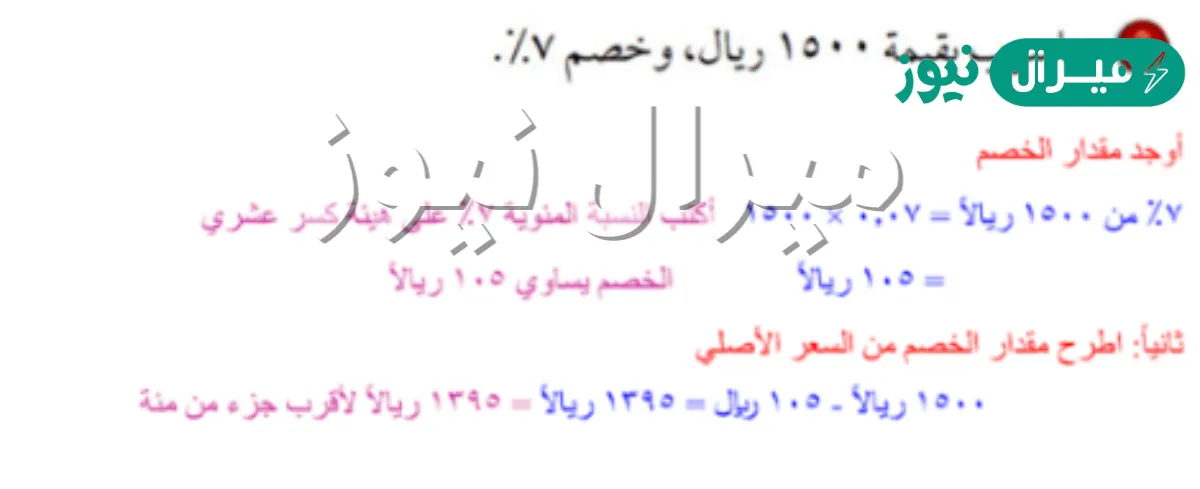 بقيمة ١٥٠٠ ريال، وخصم ٧٪.
ميرال نيوز
أوجد مقدار الخصم
ميرال نيوز
٧٪ من ١٥٠٠ ريالاً = ٠,٠٧ × ١٥٠٠ أكتب النسبة المئوية ٧٪ على هيئة كسر عشري
= ١٠٥ ريالاً الخصم يساوي ١٠٥ ريالاً
ثانياً: اطرح مقدار الخصم من السعر الأصلي
١٥٠٠ ريالاً - ١٠٥ ريال = ١٣٩٥ ريالاً = ١٣٩٥ ريالاً لأقرب جزء من مئة